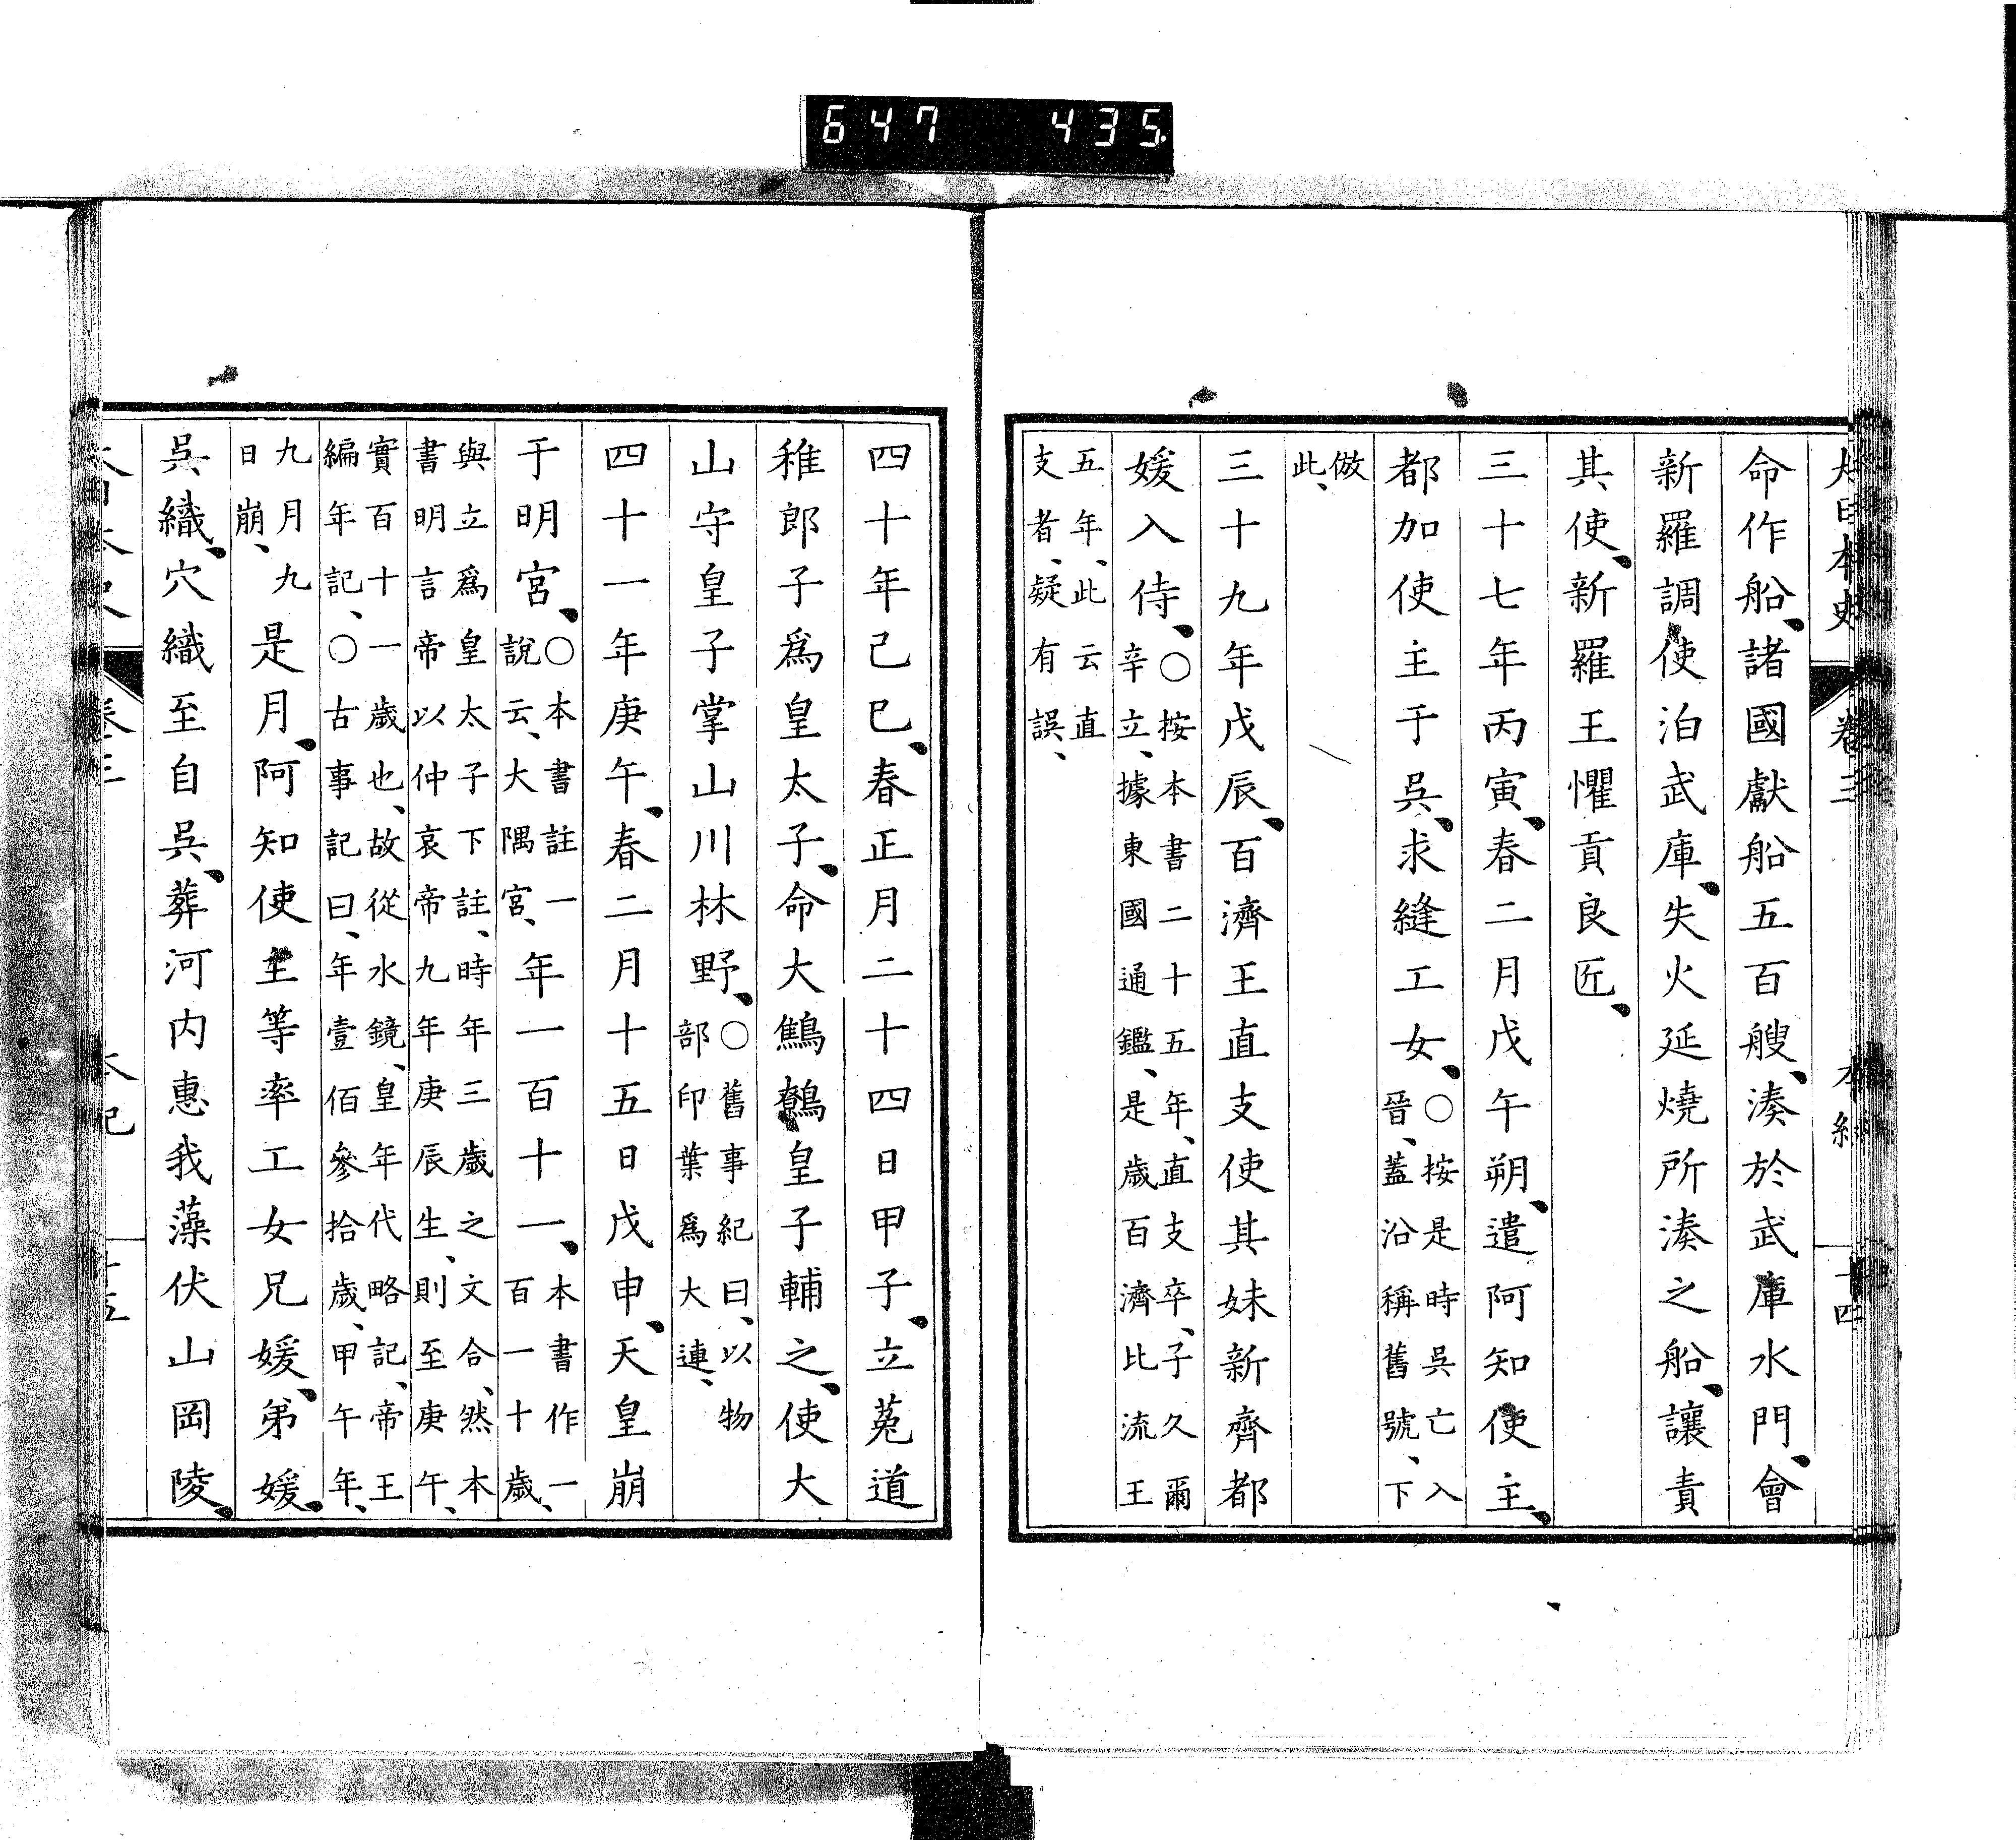 647 435.
大日本史 卷三 本紀 十四
命作船、諸國獻船五百艘、湊於武庫水門、會
新羅調使泊武庫、失火延燒所湊之船、讓責
其使、新羅王懼貢良匠、
三十七年丙寅、春二月戊午朔、遣阿知使主、
都加使主于吳、求縫工女、○按是時吳亡入晉、蓋沿稱舊號、下
倣此、
三十九年戊辰、百濟王直支使其妹新齊都
媛入侍、○按本書二十五年、直支卒、子久爾辛立、據東國通鑑、是歲百濟比流王
五年、此云直支者、疑有誤、
四十年己巳、春正月二十四日甲子、立菟道
稚郎子爲皇太子、命大鷦鷯皇子輔之、使大
山守皇子掌山川林野、○舊事紀曰、以物部印葉爲大連、
四十一年庚午、春二月十五日戊申、天皇崩
于明宮、○本書註一說云、大隅宮、年一百十一、本書作一百一十歲、
與立爲皇太子下註、時年三歲之文合、然本書明言帝以仲哀帝九年庚辰生、則至庚午、
實百十一歲也、故從水鏡、皇年代略記、帝王編年記、○古事記曰、年壹佰參拾歲、甲午年、
九月九日崩、是月、阿知使主等率工女兄媛、弟媛、
吳織、穴織至自吳、葬河内惠我藻伏山岡陵、
大日本史 卷三 本紀 十五